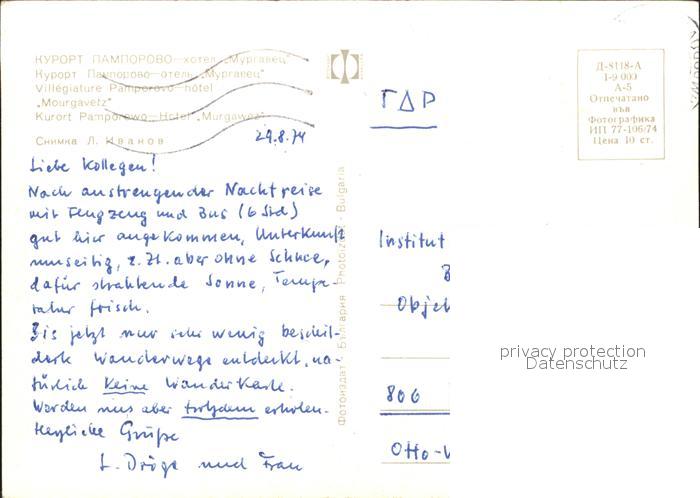 КУРОРТ ПАМПОРОВО—хотел „Мургавец"
Курорт Пампорово—отель „Мургавец"
Villégiature Pamporovo—hôtel
„Mourgavetz"
Kurort Pamporowo—Hotel „Murgawez"
Снимка Л. Иванов
29.8.74
Liebe Kollegen!
Nach anstrengender Nachtreise
mit Flugzeug und Bus (6 Std)
gut hier angekommen, Unterkunft
z. Zt. aber ohne Schnee,
dafür strahlende Sonne, Tempe-
ratur frisch.
Bis jetzt nur sehr wenig beschil-
derte Wanderwege entdeckt, na-
türlich keine Wanderkarte.
Werden uns aber trotzdem erholen.
Herzliche Grüße
L. Dröge und Frau
Фотоиздат - България Photoizdat - Bulgaria
ГДР
Institut
Objek
806
Otto-
Д-8118-А
I-9 000
А-5
Отпечатано
във
Фотографика
ИП 77-106/74
Цена 10 ст.
privacy protection
Datenschutz